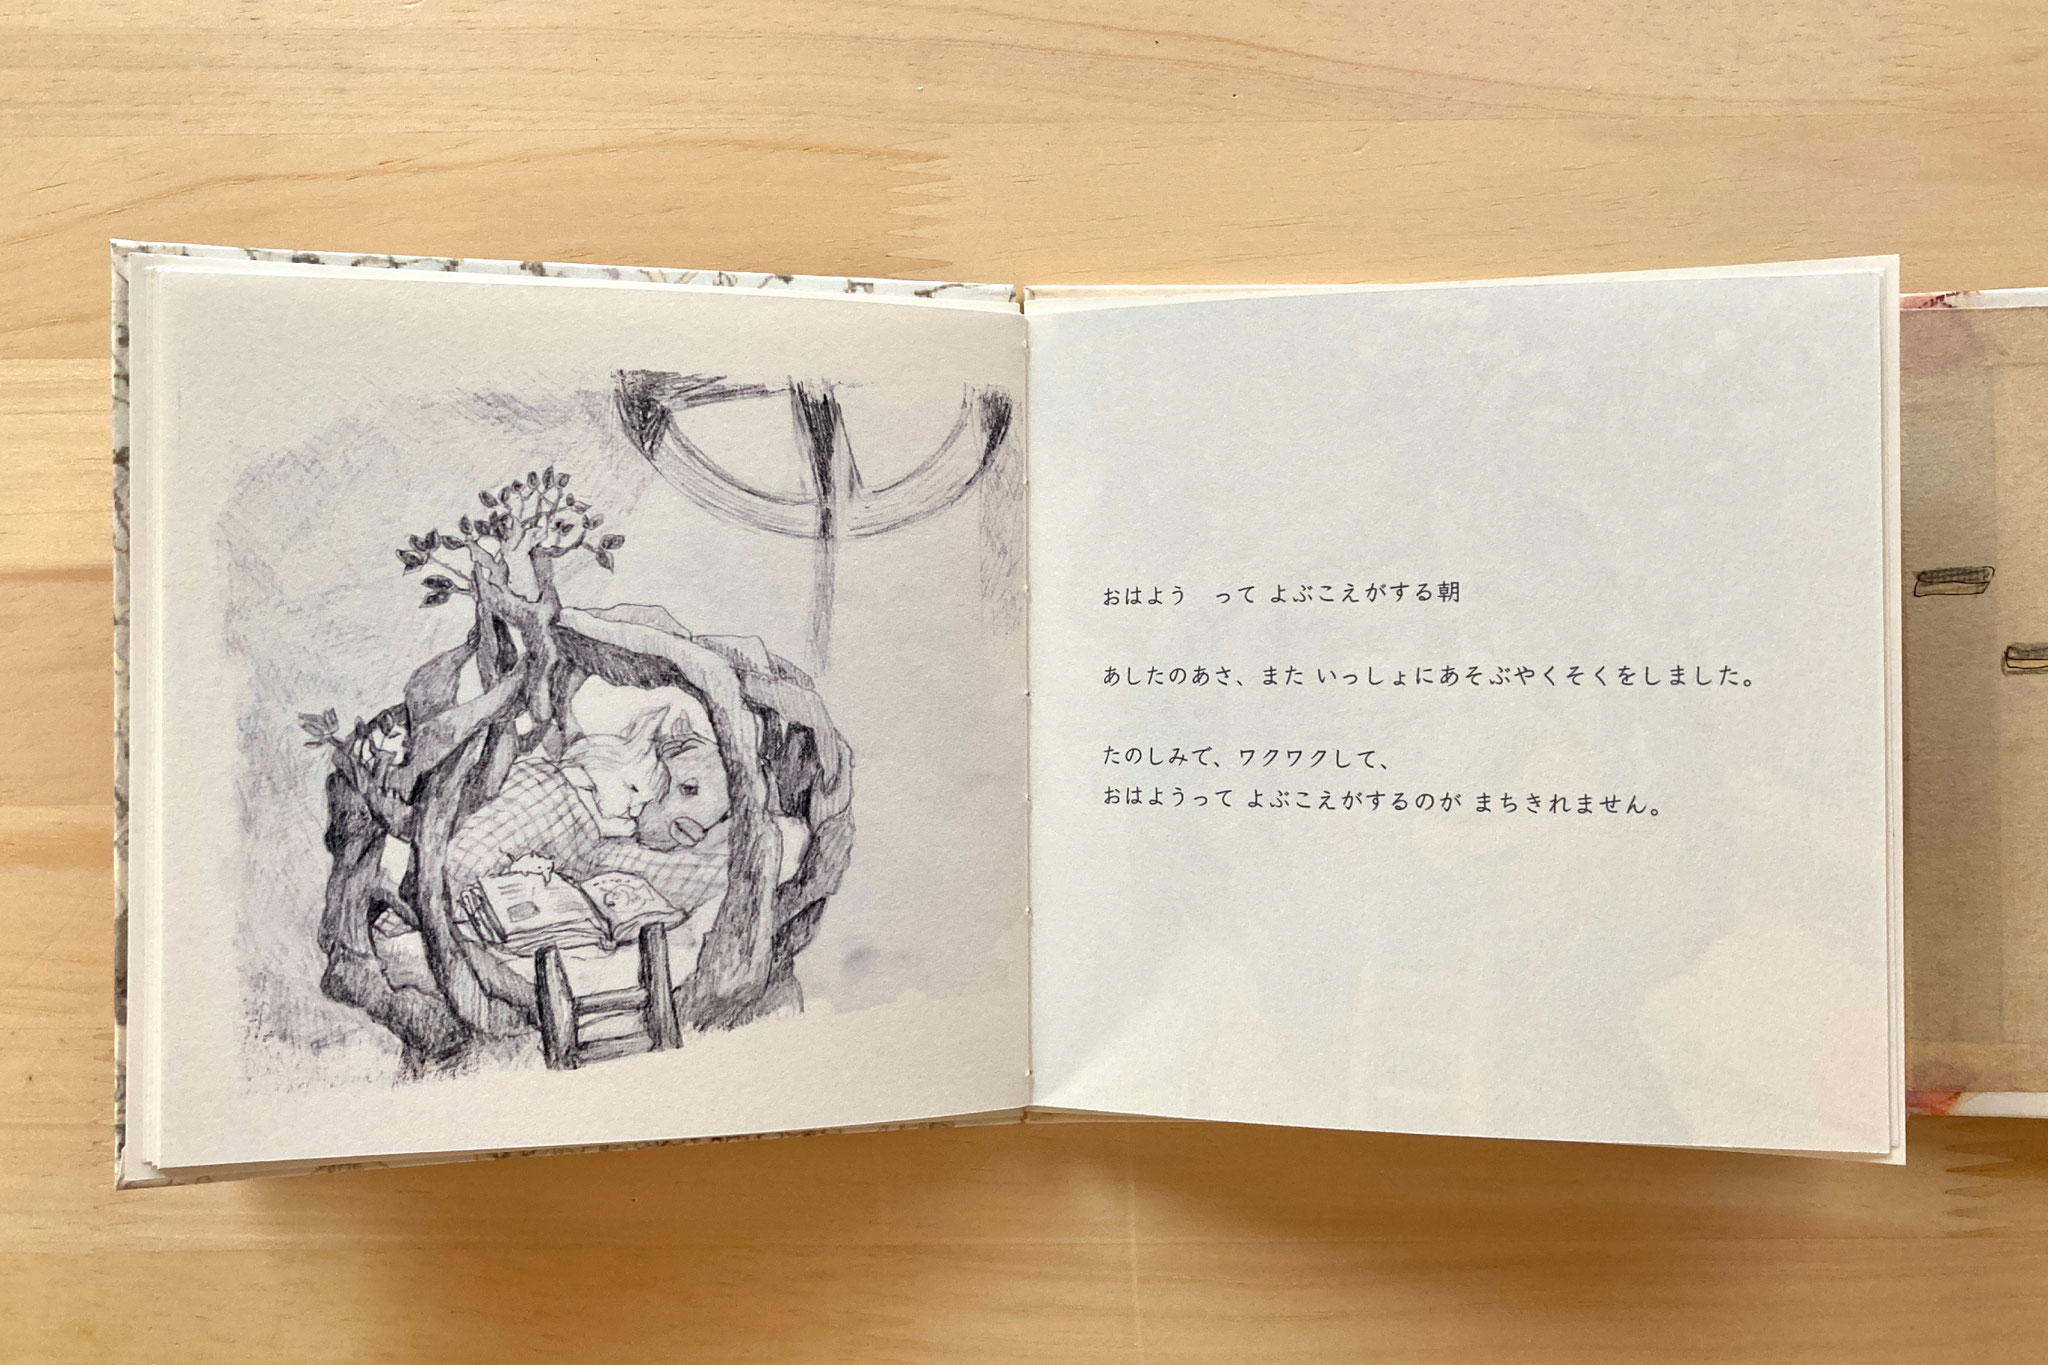 おはよう　って よぶこえがする朝
あしたのあさ、また いっしょにあそぶやくそくをしました。
たのしみで、ワクワクして、
おはようって よぶこえがするのが まちきれません。